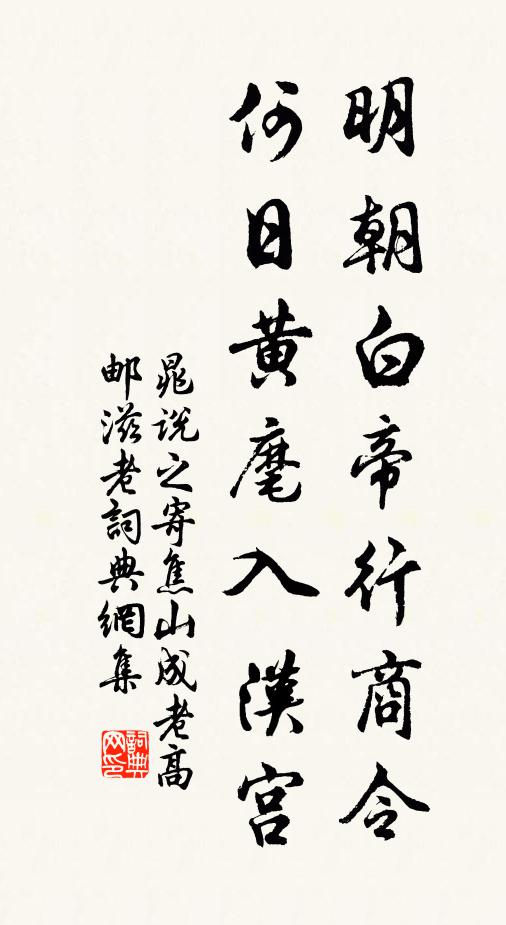 明朝白帝行商令
何日黄麾入漢宫
晁說之寄焦山成老高
邮滋老詞典網集
詞典网印